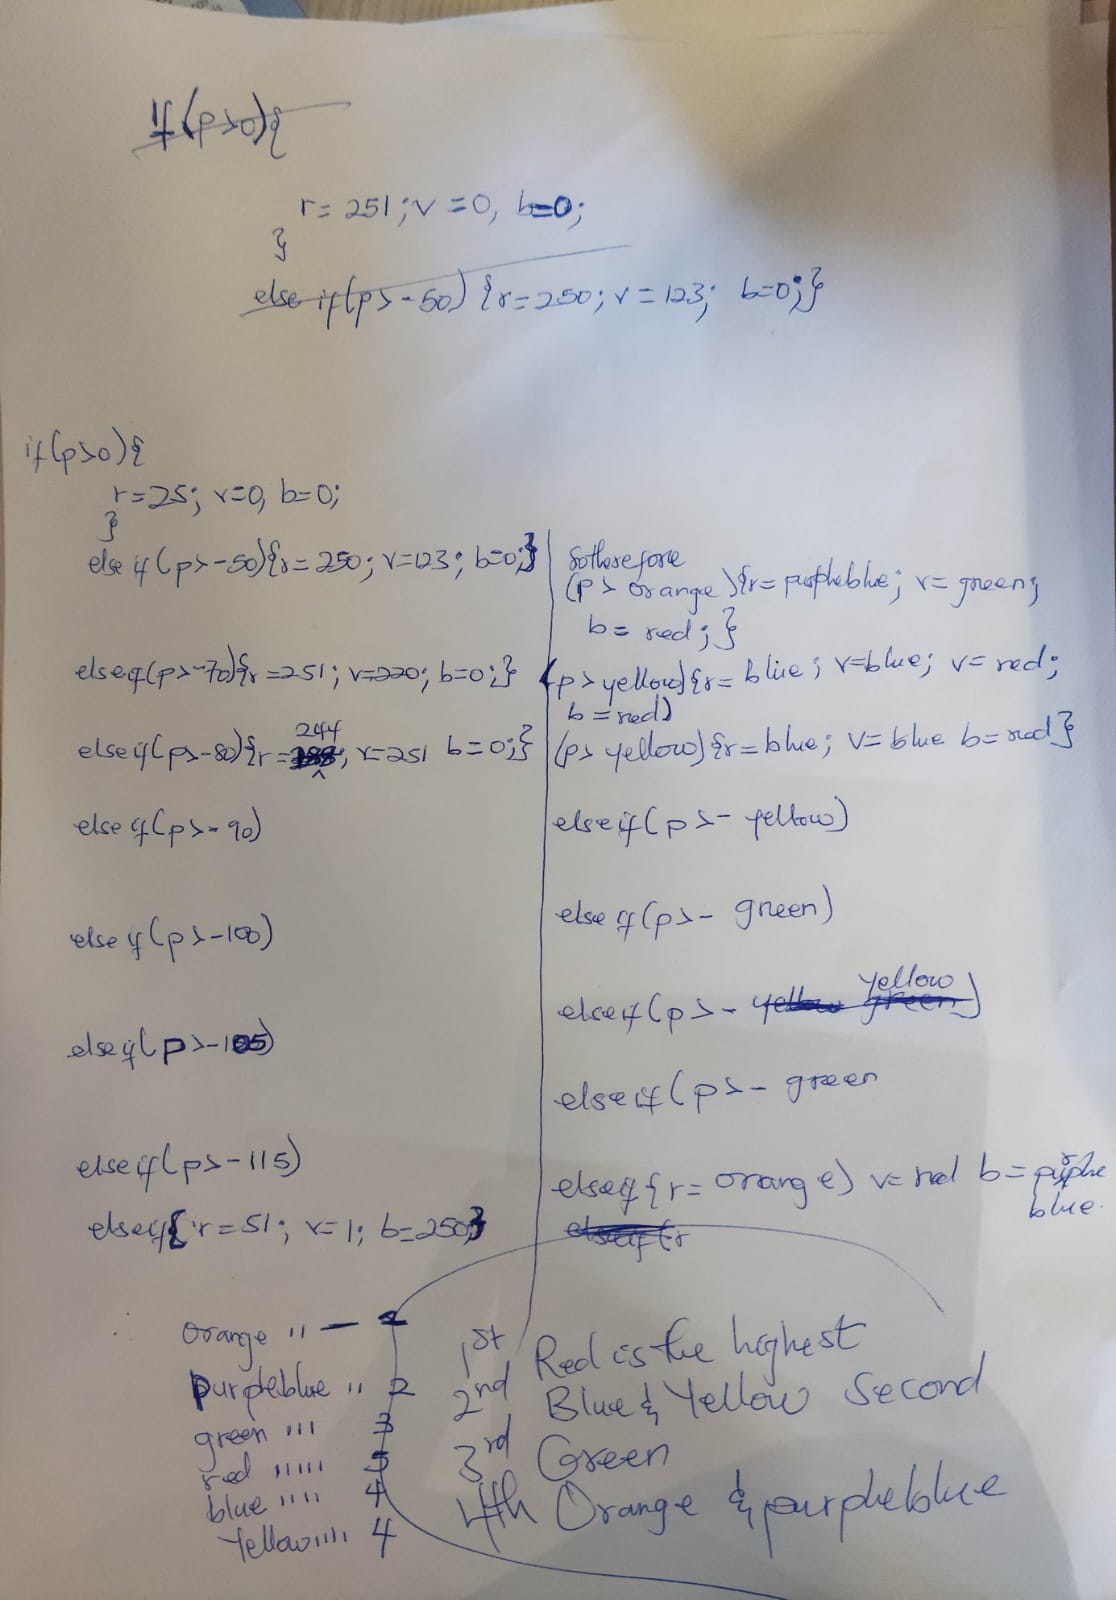 If(p>0){
r=251; v=0, b=0;
}
else if(p>-50) {r=250; v=123; b=0;}
if(p>0){
r=25; v=0, b=0;
}
else if(p>-50){r=250; v=123; b=0;}
else if(p>-70){r=251; v=220; b=0;}
244
else if(p>-80){r= ; v=251 b=0;}
else if(p>-90)
else if(p>-100)
else if(p>-105)
else if(p>-115)
else if{r=51; v=1; b=250}
Sotherefore
(p> orange){r=purpleblue; v=green;
b= red;}
(p>yellow){r= blue; v=blue; v= red;
b=red)
(p> yellow){r=blue; v=blue b=red}
else if(p>- yellow)
else if(p>- green)
yellow
else if(p>- yellow green)
else if(p>- green
else if{r= orange) v=red b=purple
blue.
else if{r
orange " —
purpleblue " 2
green ''' 3
red ''''' 5
blue '''' 4
Yellow '''' 4
1st Red is the highest
2nd Blue & Yellow Second
3rd Green
4th Orange & purpleblue